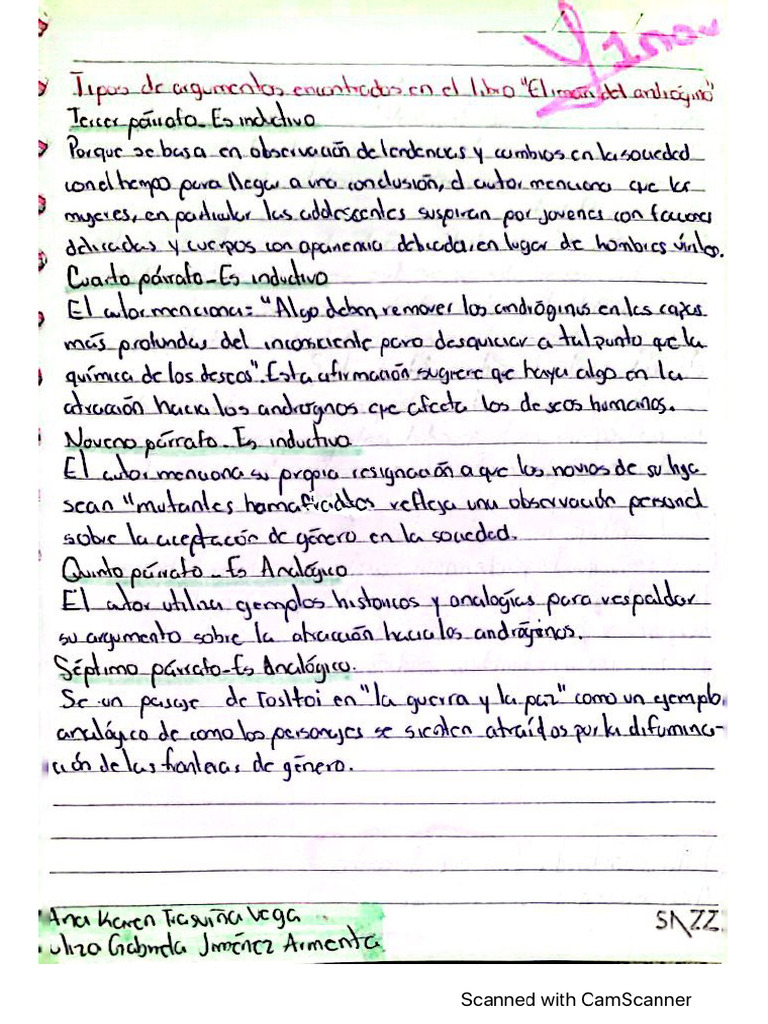 Tipos de argumentos encontrados en el libro "El imán del andrógino"
Tercer párrafo_Es inductivo
Porque se basa en observación de tendencias y cambios en la sociedad
con el tiempo para llegar a una conclusión, el autor menciona que las
mujeres, en particular las adolescentes suspiran por jovenes con facciones
delicadas y cuerpos con apariencia delicada, en lugar de hombres viriles.
Cuarto párrafo_Es inductivo
El autor menciona: "Algo deben remover los andróginos en las capas
más profundas del inconsciente para desquiciar a tal punto que la
química de los deseos". Esta afirmación sugiere que haya algo en la
atracción hacia los andrognos que afecta los deseos humanos.
Noveno párrafo_Es inductivo
El autor menciona su propia resignación a que los novios de su hija
sean "mutantes refleja una observación personal
sobre la aceptación de género en la sociedad.
Quinto párrafo_Es Analógico
El autor utiliza ejemplos historicos y analogías para respaldar
su argumento sobre la atracción hacia los andróginos.
Séptimo párrafo_Es Analógico.
Se un pasaje de Tosltoi en "la guerra y la paz" como un ejemplo
analógico de como los personajes se sienten atraídos por la difumina-
ción de las fronteras de género.
Ana Karen Vega
Gabriela Jiménez Armenta
SAZZ
Scanned with CamScanner